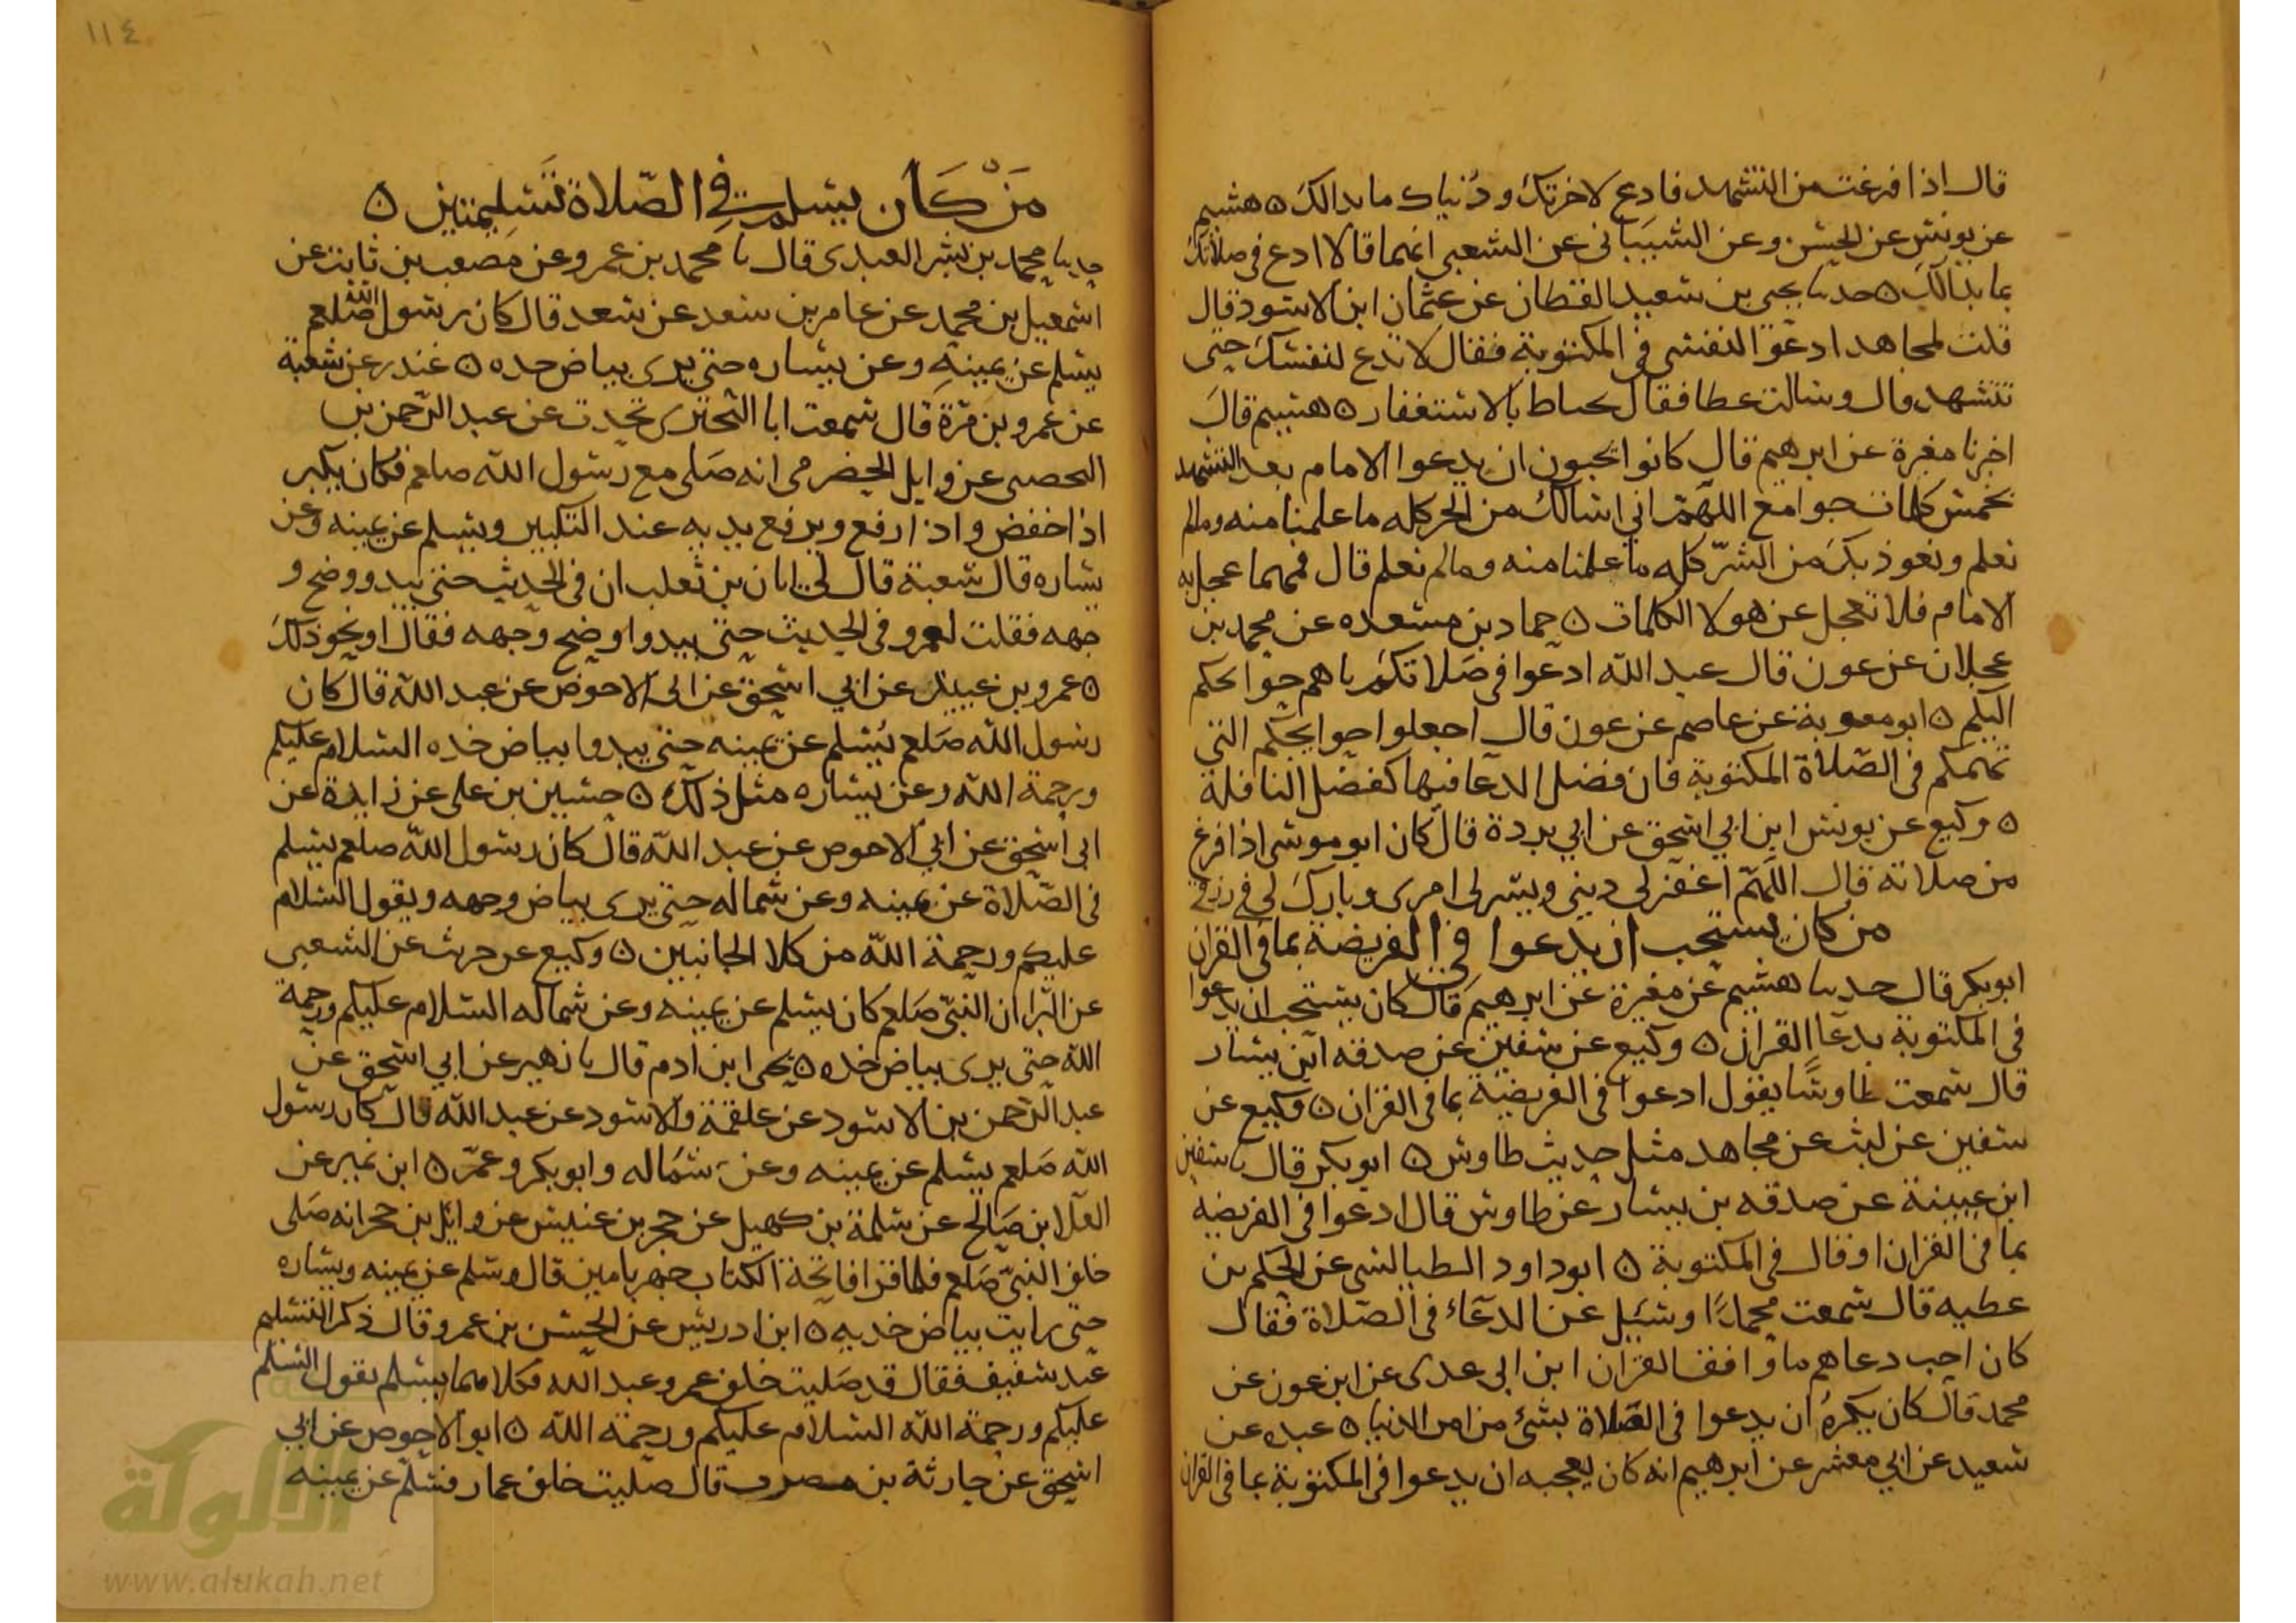 قال اذا فرغت من التشهد فادع لاخرتك ودنياك ما بدالك ه هشيم
عن يونس عن الحسن وعن الشيباني عن الشعبي انهما قالا ادع في صلاتك
بما بدالك ه حدثنا يحيى بن سعيد القطان عن عثمان ابن الاسود قال
قلت لمجاهد ادعوا لنفسي في المكتوبة فقال لا تدع لنفسك حتى
تتشهد قال وسالت عطا فقال بالاستغفار ه هشيم قال
اخبرنا مغيرة عن ابرهيم قال كانوا يحبون ان يدعوا الامام بعد التشهد
بخمس كلمات جوامع اللهم اني اسالك من الخير كله ما علمنا منه وما لم
نعلم ونعوذ بك من الشر كله ما علمنا منه وما لم نعلم قال فمهما عجل به
الامام فلا تعجل عن هولا الكلمات ه حماد بن مسعده عن محمد بن
عجلان عن عون قال عبد الله ادعوا في صلاتكم باهم حوائجكم
اليكم ه ابو معوية عن عاصم عن عون قال اجعلوا حوايجكم التي
تهمكم في الصلاة المكتوبة فان فضل الدعا فيها كفضل النافلة
ه وكيع عن يونس ابن ابي اسحق عن ابي بردة قال كان ابو موسى اذا فرغ
من صلاته قال اللهم اغفر لي ديني ويسر لي امرى وبارك لي في رزقي
من كان يستحب ان يدعوا في الفريضة بما في القران
ابو بكر قال حدثنا هشيم عن مغيرة عن ابرهيم قال كان يستحب ان يدعوا
في المكتوبة بدعا القران ه وكيع عن سفين عن صدقه ابن يسار
قال سمعت طاوسا يقول ادعوا في الفريضة بما في القران ه وكيع عن
سفين عن ليث عن مجاهد مثل حديث طاوس ه ابو بكر قال نا سفين
ابن عيينة عن صدقه بن يسار عن طاوس قال ادعوا في الفريضه
بما في القران او قال في المكتوبة ه ابو داود الطيالسي عن الحكم بن
عطيه قال سمعت محمدا وسئيل عن الدعاء في الصلاة فقال
كان احب دعاهم ما وافق القران ابن ابي عدى عن ابن عون عن
محمد قال كان يكره ان يدعوا في الصلاة بشئ من امر الدنيا ه عبده عن
سعيد عن ابي معشر عن ابرهيم انه كان يعجبه ان يدعوا في المكتوبة بما في القران
١١٤
مَنْ كَان يسلم في الصّلاة تَسْلِيمتين ه
حدثنا محمد بن بشر العبدى قال نا محمد بن عمرو عن مصعب بن ثابت عن
اسمعيل بن محمد عن عامر بن سعد عن سعد قال كان رسول الله صلعم
يسلم عن يمينه وعن يساره حتى يرى بياض خده ه غندر عن شعبة
عن عمرو بن مرة قال سمعت ابا البختري يحدث عن عبد الرحمن بن
اليحصبى عن وايل الحضرمى انه صلى مع رسول الله صلعم فكان يكبر
اذا خفض واذا رفع ويرفع يديه عند التكبير ويسلم عن يمينه وعن
يساره قال شعبة قال لى ابان بن ثعلب ان في الحديث حتى يبدو وضح و
جهه فقلت لعمرو في الحديث حتى يبدوا وضح وجهه فقال او نحو ذلك
ه عمرو بن عبيد عن ابي اسحق عن ابى الاحوص عن عبد الله قال كان
رسول الله صلعم يُسلم عن يمينه حتى يبدوا بياض خده السلام عليكم
ورحمة الله وعن يساره مثل ذلك ه حسين بن على عن زايدة عن
ابى اسحق عن ابي الاحوص عن عبد الله قال كان رسول الله صلعم يسلم
في الصلاة عن يمينه وعن شماله حتى يرى بياض وجهه ويقول السلام
عليكم ورحمة الله من كلا الجانبين ه وكيع عن حريث عن الشعبى
عن البرا ان النبي صلعم كان يسلم عن يمينه وعن شماله السلام عليكم ورحمة
الله حتى يرى بياض خده ه يحيى ابن ادم قال نا زهير عن ابي اسحق عن
عبد الرحمن بن الاسود عن علقمة والاسود عن عبد الله قال كان رسول
الله صلعم يسلم عن يمينه وعن شماله وابو بكر وعمر ه ابن نمير عن
العلا ابن صالح عن سلمة بن كهيل عن حجر بن عنبس عن وايل بن حجر انه صلى
خلف النبي صلعم فلما قرا فاتحة الكتاب جهر بامين قال وسلم عن يمينه ويساره
حتى رايت بياض خديه ه ابن ادريس عن الحسن بن عمرو قال ذكر التسليم
عند شقيق فقال قد صليت خلف عمر وعبد الله فكلاهما يسلم يقول السلم
عليكم ورحمة الله السلام عليكم ورحمة الله ه ابو الاحوص عن ابي
اسحق عن حارثة بن مضرب قال صليت خلف عمار فسلم عن يمينه
الألوكة
www.alukah.net